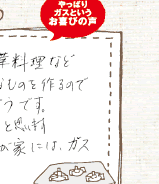 やっぱり
ガスという
お喜びの声
料理など
なものを作るので
うです。
と思います
が家には、ガス